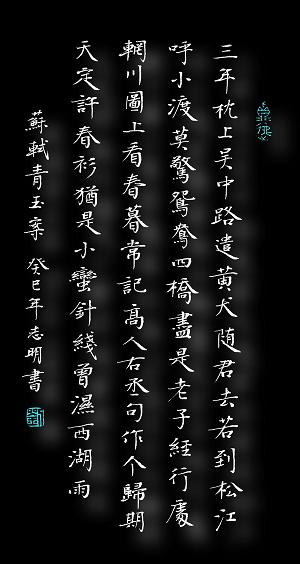 三年枕上吴中路遣黄犬随君去若到松江
呼小渡莫驚鴛鴦四橋盡是老子經行處
輞川圖上看春暮常記高人右丞句作个歸期
天定許春衫猶是小蠻針綫曾濕西湖雨
蘇軾青玉案 癸巳年志明書